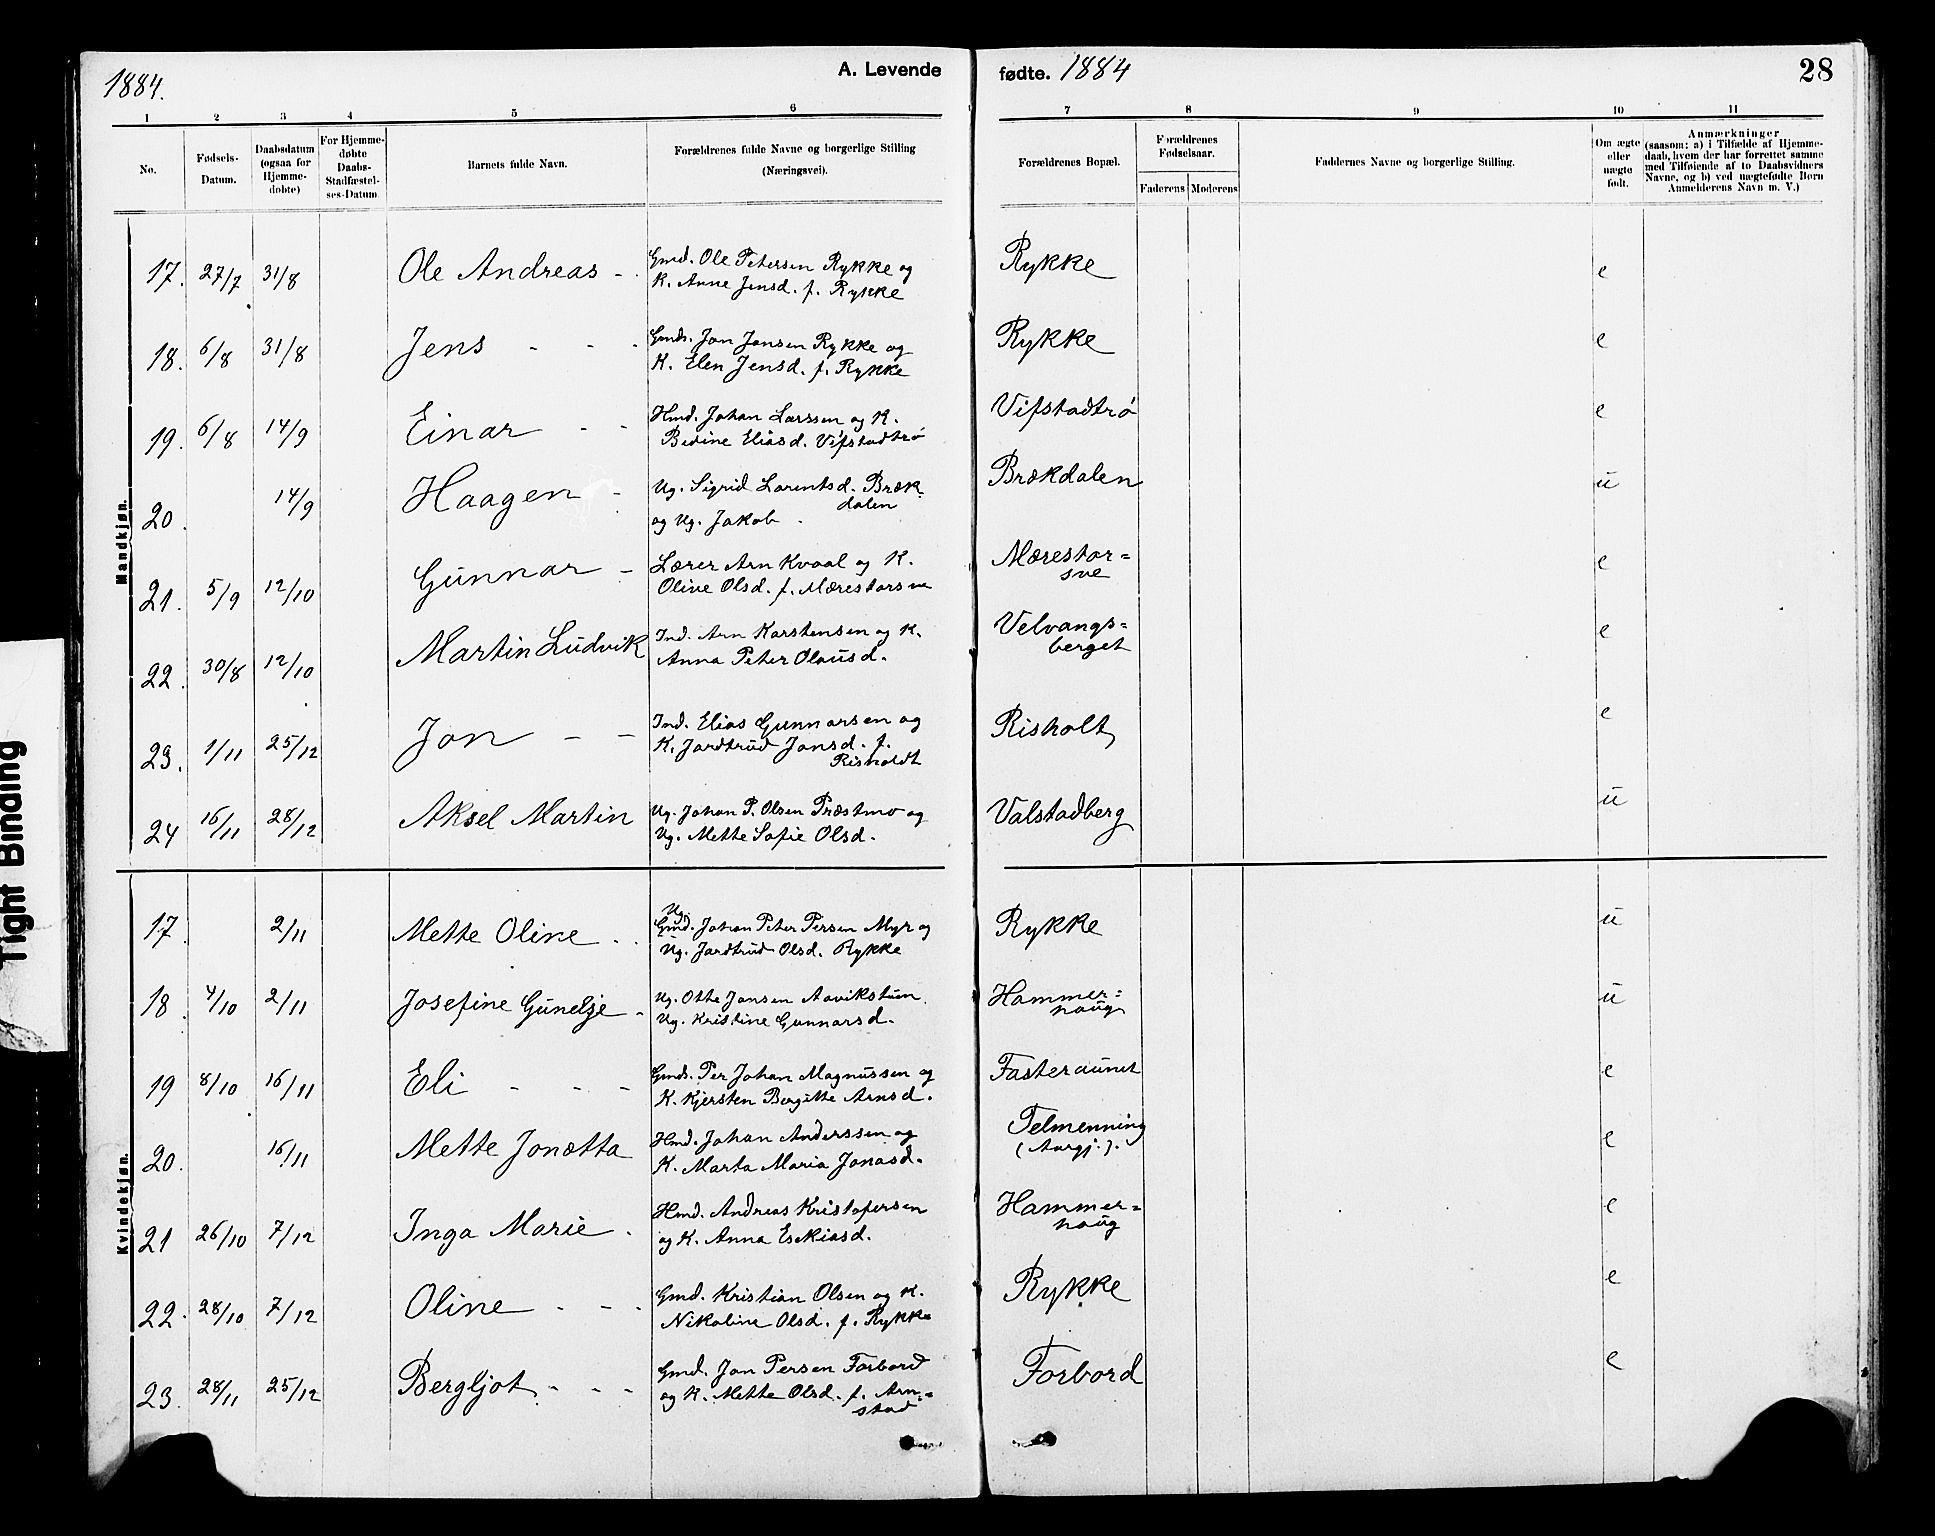 1884.
A. Levende
fødte. 1884
28
1 2 3 4 5 6 7 8 9 10 11
No.
Fødsels-
Datum.
Daabsdatum
(ogsaa for
Hjemme-
døbte)
For Hjemme-
døbte
Daabs-
Stadfæstel-
ses-Datum
Barnets fulde Navn.
Forældrenes fulde Navne og borgerlige Stilling
(Næringsvei).
Forældrenes Bopæl.
Forældrenes
Fødselsaar.
Faderens Moderens
Faddernes Navne og borgerlige Stilling.
Om ægte
eller
nægte
født.
Anmærkninger
(saasom: a) i Tilfælde af Hjemme-
daab, hvem der har forrettet samme
med Tilføiende af to Daabsvidners
Navne, og b) ved nægtefødte Børn
Anmelderens Navn m. V.)
Mandkjøn.
17. 27/7 31/8 Ole Andreas - Gmd. Ole Petersen Rykke og
K. Anne Jensd. f. Rykke
Rykke e
18. 6/8 31/8 Jens - - - Gmds. Jon Jonsen Rykke og
K. Elen Jensd. f. Rykke
Rykke e
19. 6/8 14/9 Einar - - Hmd. Johan Larssen og K.
Bedine Eliasd. Vifstadtrø
Vifstadtrø e
20. 14/9 Haagen - Ug. Sigrid Lorentsd. Bræk-
dalen
og Ug. Jakob -
Brækdalen u
21. 5/9 12/10 Gunnar - Lærer Arn Kvaal og K.
Oline Olsd. f. Mærestorsve
Mærestor=
sve
e
22. 30/8 12/10 Martin Ludvik Ind. Arn Karstensen og K.
Anna Peter Olausd.
Velvangs=
berget
e
23. 1/11 25/12 Jon - - Ind. Elias Gunnarsen og
K. Jardtrud Jonsd. f.
Risholdt
Risholt e
24 16/11 28/12 Aksel Martin Ug. Johan P. Olsen Præstmo og
Ug. Mette Sofie Olsd.
Valstadberg u
Kvindekjøn.
17. 2/11 Mette Oline . . Ug.
Gmd. Johan Peter Persen Myr og
Ug. Jardtrud Olsd. Rykke
Rykke u
18. 4/10 2/11 Josefine Gunelje - Ug. Otte Jonsen Aavikstun
Ug. Kristine Gunnarsd.
Hammer=
haug
u
19 8/10 16/11 Eli - - - Gmds. Per Johan Magnussen og
K. Kjersten Bergitte Arnsd.
Fasteraunet e
20. 16/11 Mette Jonætta Hmd. Johan Anderssen og
K. Marta Maria Jonasd.
Telmenning
(Aargj.).
e
21 26/10 7/12 Inga Marie . Hmd. Andreas Kristofersen
og K. Anna Eskiasd.
Hammer=
haug
e
22. 28/10 7/12 Oline - - . Gmd. Kristian Olsen og K.
Nikoline Olsd. f. Rykke
Rykke e
23. 28/11 25/12 Bergljot - - - Gmd. Jon Persen Forbord
og K. Mette Olsd. f. Arn=
stad
Forbord e
Tight Binding